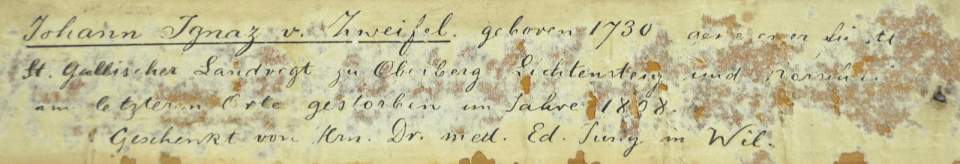 Johann Ignaz v. Zweifel. geboren 1730
St. Gallischer Landvogt zu Oberberg Lichtensteig und
am letztern Orte gestorben im Jahre
Geschenkt von Hrn. Dr. med. Ed. Jung in Wil.